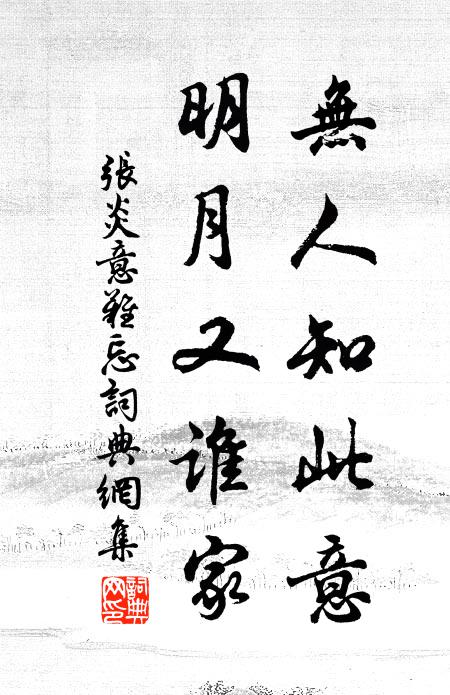 無人知此意
明月又誰家
張炎意難忘詞典網集
詞典網印